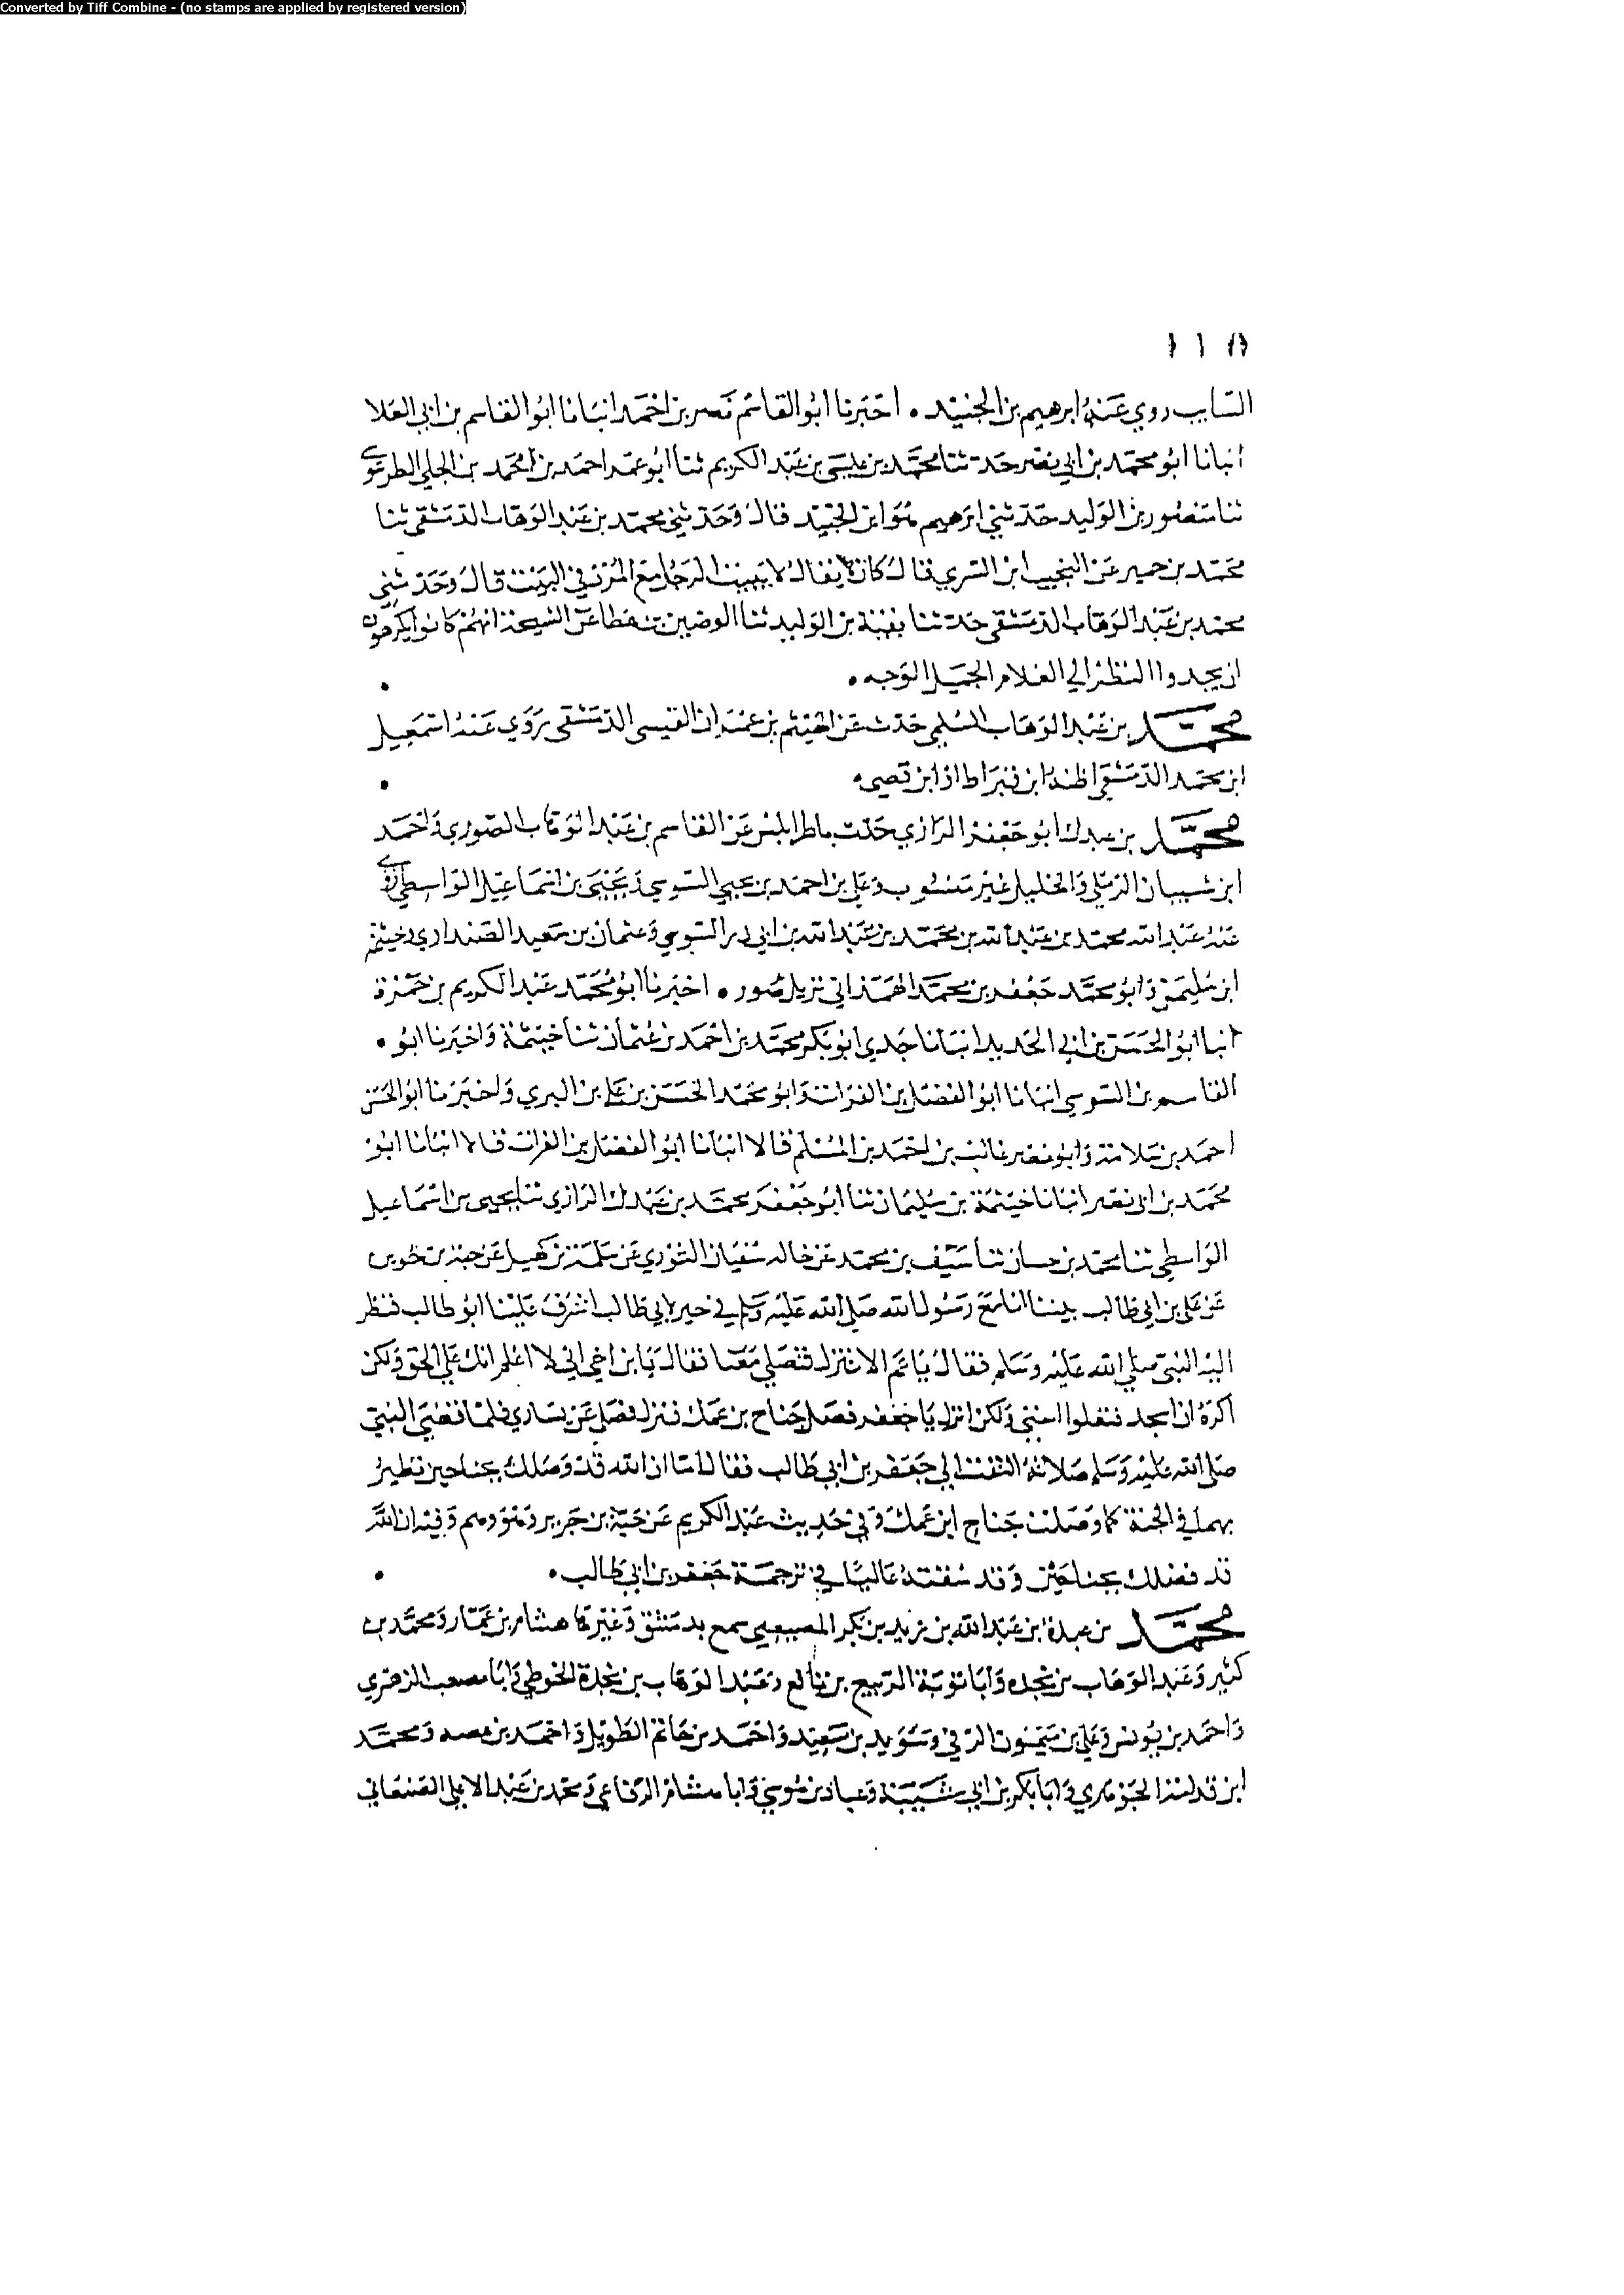 Converted by Tiff Combine - (no stamps are applied by registered version)
السايب روي عنه ابرهيم بن الجنيد . اخبرنا ابو القاسم نصر بن احمد انبانا ابو القاسم بن ابي العلا
انبانا ابو محمد بن ابي نصر حدثنا محمد بن عيسى بن عبد الكريم ثنا ابو عمر احمد بن محمد بن الطرسوسي
ثنا منصور بن الوليد حدثني ابرهيم هو ابن الجنيد قال وحدثني محمد بن عبد الوهاب الدمشقي ثنا
محمد بن حمير عن النجيب ابن السري قال كان يقال لا يبيت الرجل مع المرد في البيت قال وحدثني
محمد بن عبد الوهاب الدمشقي حدثنا بقية بن الوليد ثنا الوضين بن عطا عن الشيخة انهم كانوا يكرهون
ان يحدوا النظر الي الغلام الجميل الوجه .
محمد بن عبد الوهاب السلمي حدث عن الهيثم بن عمران القيسي الدمشقي روي عنه اسمعيل
ابن محمد الدمشقي اظنه ابن قيراط ان ابن قصي
محمد بن عبدك ابو جعفر الرازي حدث باطرابلس عن القاسم بن عبد الوهاب الصوري واحمد
ابن شيبان الرملي والخليل غير منسوب وعلي بن احمد بن يحيي السوسي ويحيى بن اسماعيل الواسطي روى
عنه عبد الله محمد بن عبد الله بن محمد بن عبد الله بن ابي در السوسي وعثمان بن سعيد الصنداري وخيثمة
ابن سليمن وابو محمد جعفر بن محمد الهمذاني نزيل صور . اخبرنا ابو محمد عبد الكريم بن حمزة
انبا ابو الحسن بن ابي الحديد انبانا جدي ابو بكر محمد بن احمد بن عثمان ثنا خيثمة واخبرنا ابو .
القاسم بن السوسي انبانا ابو الفضل بن الفرات وابو محمد الحسن بن علي بن البري واخبرنا ابو الحسن
احمد بن سلامة وابو نصر غالب بن احمد بن المسلم قالا انبانا ابو الفضل بن الفرات قالا انبانا ابو
محمد بن ابي نصر انبانا خيثمة بن سليمان ثنا ابو جعفر محمد بن عبدك الرازي ثنا يحيى بن اسماعيل
الواسطي ثنا محمد بن حسان ثنا سيف بن محمد عن خاله سفيان الثوري عن سلمة بن كهيل عن حبة بن جوين
عن علي بن ابي طالب بيننا انا مع رسول الله صلى الله عليه وسلم في حير لابي طالب اشرف علينا ابو طالب فنظر
اليه النبي صلي الله عليه وسلم فقال يا عم الا تنزل فتصلي معنا فقال يا بن اخي اني لا اعلم انك على الحق ولكن
اكره ان اسجد فتعلوا استي ولكن انزل يا جعفر فصل جناح بن عمك فنزل فصلى عن يساري فلما قضي النبي
صلى الله عليه وسلم صلاته التفت الي جعفر بن ابي طالب فقال اما ان الله قد وصلك بجناحين تطير
بهما في الجنة كما وصلت جناح ابن عمك وفي حديث عبد الكريم عن حبة بن جرير وهو وهم وفيه ان الله
قد فضلك بجناحين وقد سقته عاليا في ترجمة جعفر بن ابي طالب .
محمد بن عبدة بن عبد الله بن زيد بن بكر المصيصي سمع بدمشق وغيرها هشام بن عمار ومحمد بن
كثير وعبد الوهاب بن نجده وابا توبة الربيع بن نافع وعبد الوهاب بن نجدة الحوطي وابا مصعب الزهري
واحمد بن يونس وعلي بن ميمون الرقي وسويد بن سعيد واحمد بن حاتم الطويل واحمد بن ومحمد
ابن قدامة الجوهري وابا بكر بن ابي شيبة وعباد بن موسي وابا هشام الرفاعي ومحمد بن عبد الاعلى الصنعاني